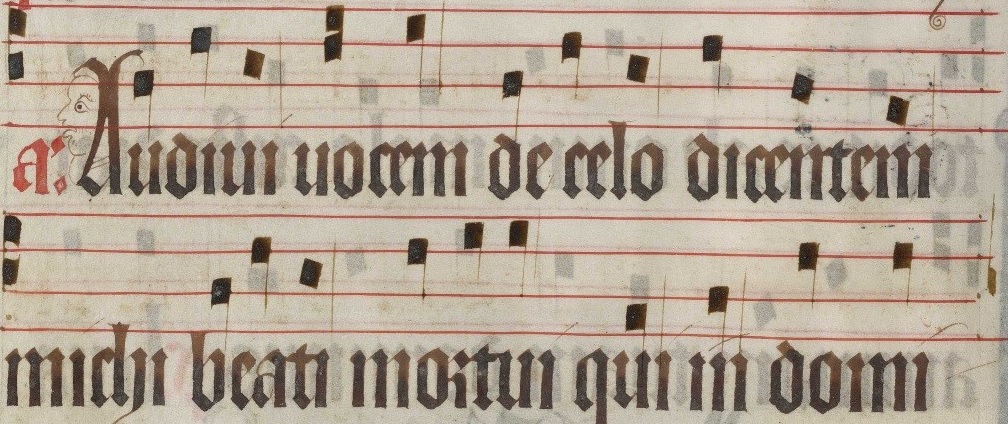 a: Audiui uocem de celo dicentem
michi beati mortui qui in domi